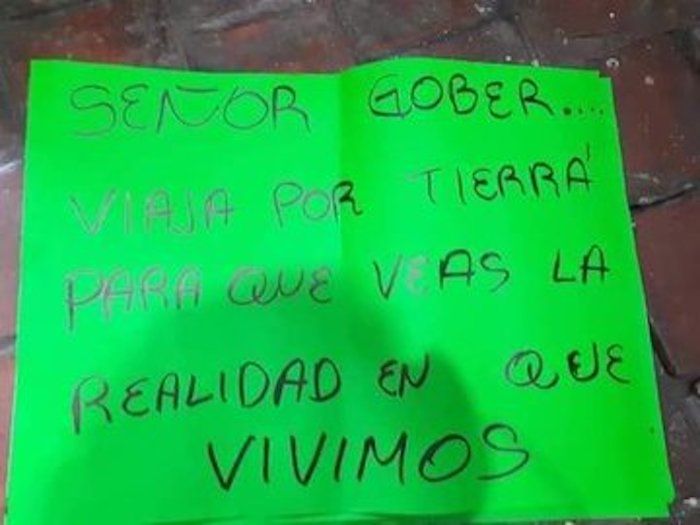 SEÑOR GOBER....
VIAJA POR TIERRÁ
PARA QUE VEAS LA
REALIDAD EN QUE
VIVIMOS